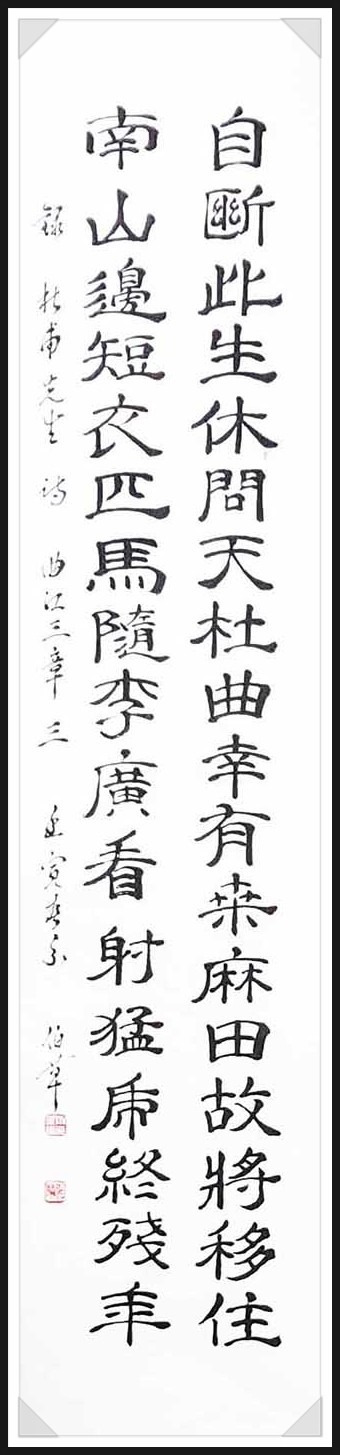 自斷此生休問天杜曲幸有桒麻田故將移住
南山邊短衣匹馬隨李廣看射猛虎終殘年
錄 杜甫先生 詩 曲江三章 三 伯華